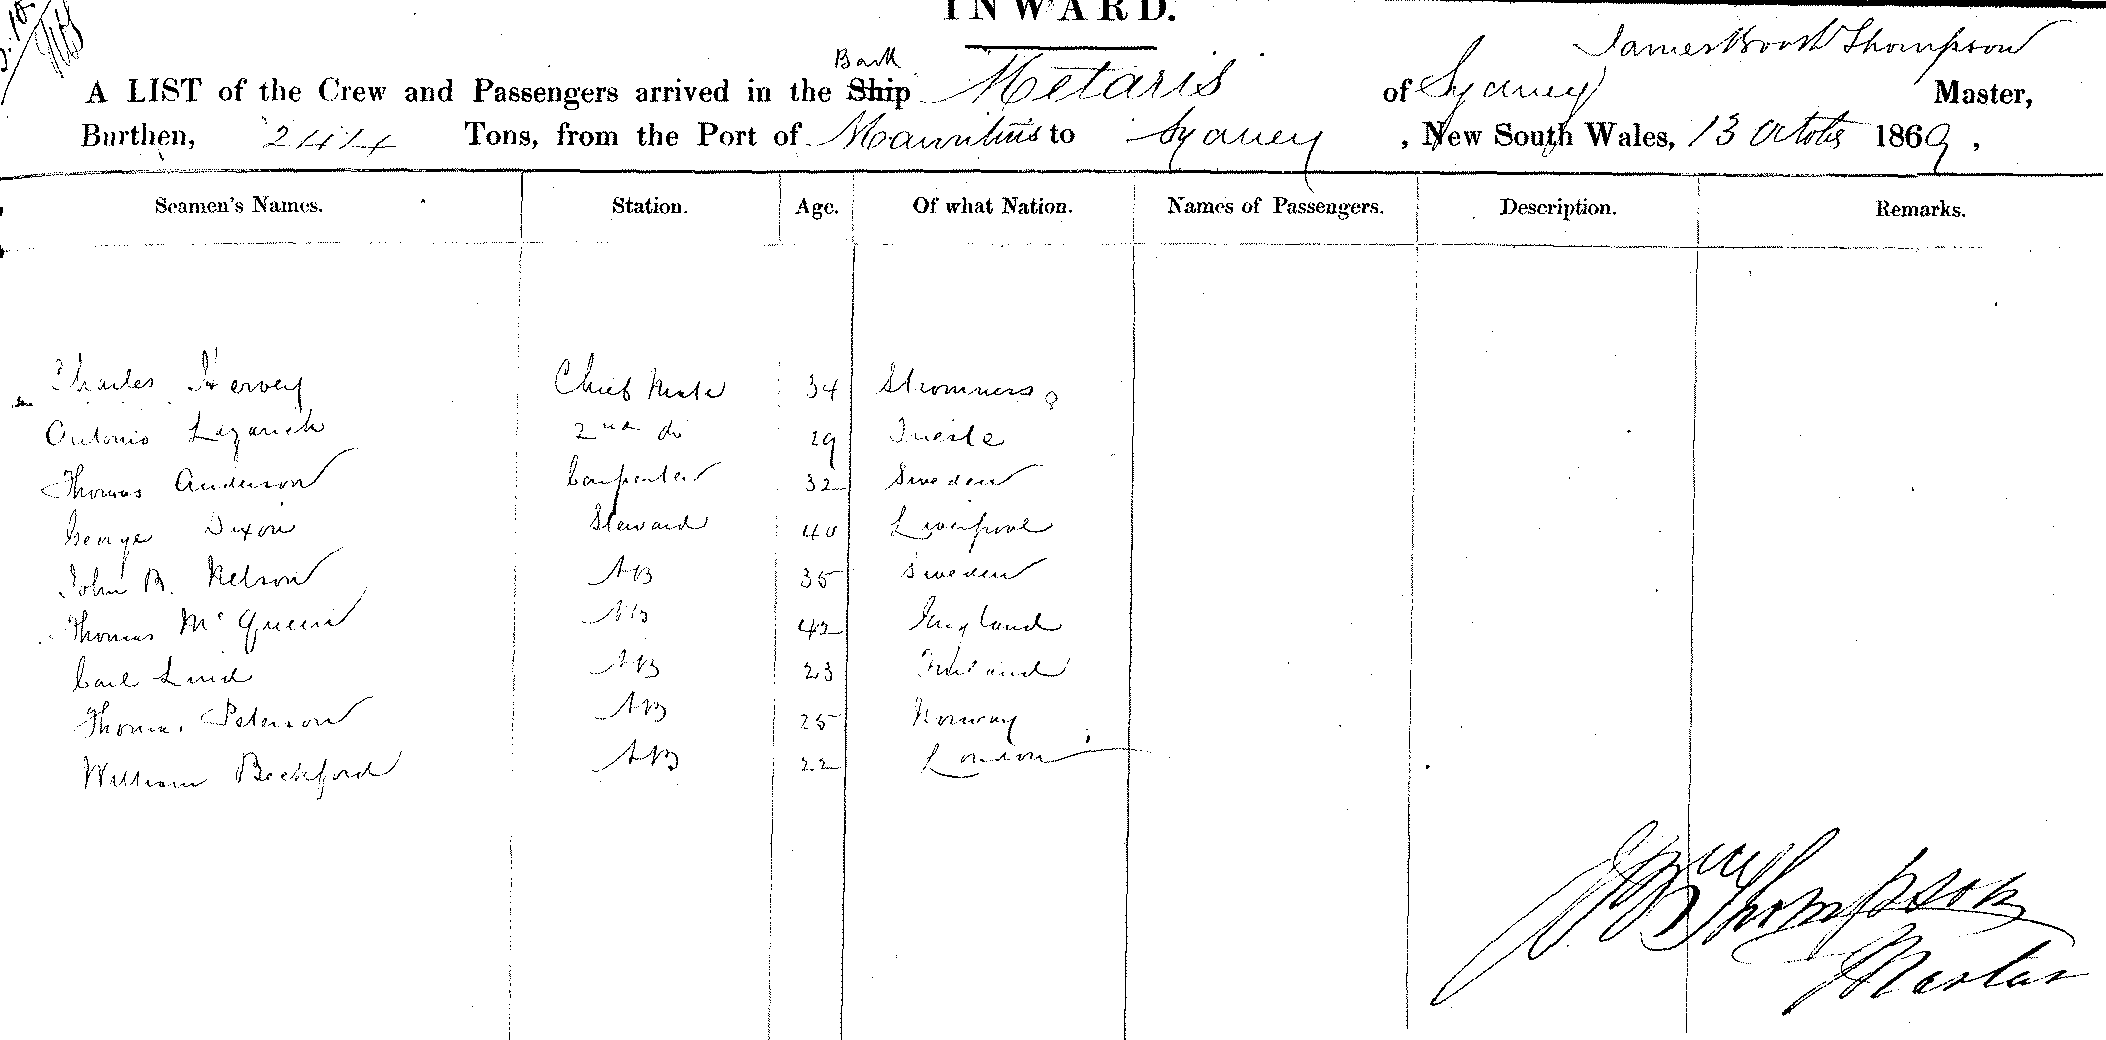 INWARD.
James Booth Thompson
Bark
A LIST of the Crew and Passengers arrived in the Ship Metaris of Sydney Master,
Burthen, 244 Tons, from the Port of Mauritius to Sydney, New South Wales, 13 October 1869,
Seamen's Names. Station. Age. Of what Nation. Names of Passengers. Description. Remarks.
Charles Hervey Chief Mate 34 Stromness
Antonio 2nd do 29 Trieste
Thomas Anderson Carpenter 32 Sweden
George Dixon Steward 40 Liverpool
John B. Nelson AB 35 Sweden
Thomas McQueen AB 42 England
Carl Lund AB 23 Finland
Thomas Peterson AB 25 Norway
William Beckford AB 22 London
JB Thompson
Master